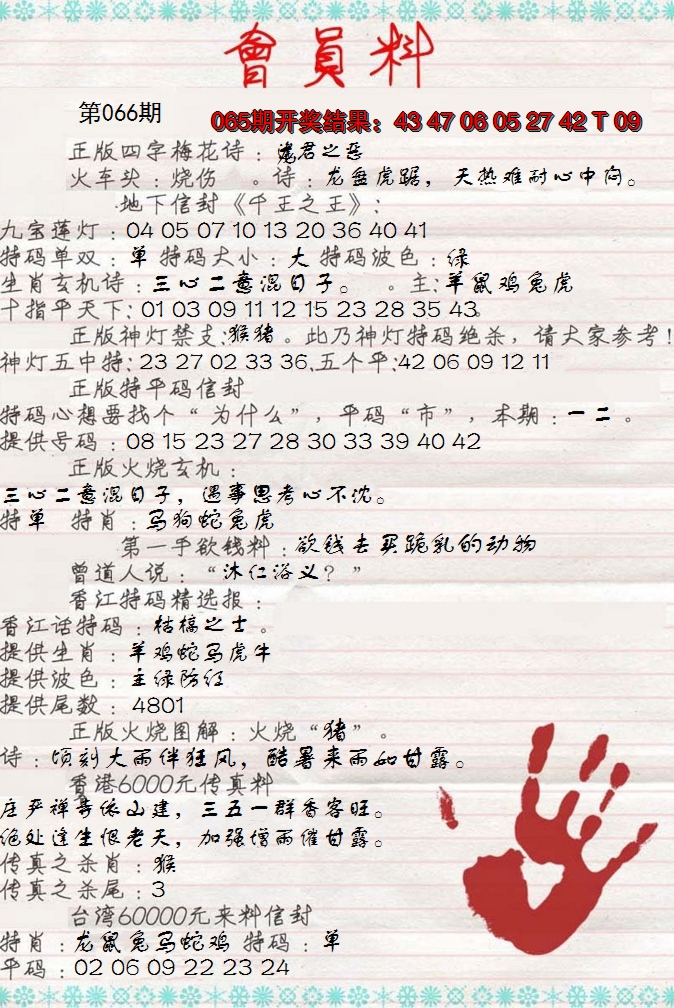 會員料
第066期
065期开奖结果：43 47 06 05 27 42 T 09
正版四字梅花诗：逢君之恶
火车头：烧伤 。诗：龙盘虎踞，天热难耐心中向。
地下信封《千王之王》：
九宝莲灯：04 05 07 10 13 20 36 40 41
特码单双：单 特码大小：大 特码波色：绿
生肖玄机诗：三心二意混日子。 。主：羊鼠鸡兔虎
十指平天下：01 03 09 11 12 15 23 28 35 43。
正版神灯禁支：猴猪。此乃神灯特码绝杀，请大家参考！
神灯五中特：23 27 02 33 36.五个平：42 06 09 12 11
正版特平码信封
特码心想要找个“为什么”，平码“市”，本期：一二。
提供号码：08 15 23 27 28 30 33 39 40 42
正版火烧玄机：
三心二意混日子，遇事思考心不沈。
特单 特肖：马狗蛇兔虎
第一手欲钱料：欲钱去买跪乳的动物
曾道人说：“沐仁浴义？”
香江特码精选报：
香江话特码：枯槁之士。
提供生肖：羊鸡蛇马虎牛
提供波色：主绿防红
提供尾数：4801
正版火烧图解：火烧“猪”。
诗：顷刻大雨伴狂风，酷暑来雨如甘露。
香港6000元传真料
庄严禅寺依山建，三五一群香客旺。
绝处逢生恨老天，加强增雨催甘露。
传真之杀肖：猴
传真之杀尾：3
台湾60000元来料信封
特肖：龙鼠兔马蛇鸡 特码：单
平码：02 06 09 22 23 24